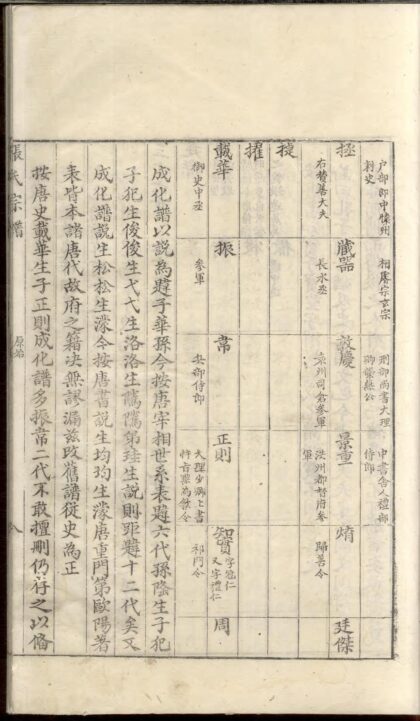 户部郎中懷州
刺史
相睿宗玄宗
刑部尚書大理
中書舍人禮部
侍郎
拯 臧器 敦慶 景重 廷傑
右贊善大夫 長水丞 州司倉參軍 洪州都督府參
軍
歸善令
捷
擢
載華 振 常 正則 智寶 字冠仁
又字禮仁 周
御史中丞 參軍 兵部侍郎 大理少卿上書
祁門令
成化譜以說為題子華孫今按唐宰相世系表題六代孫隆生子犯
子犯生俊俊生弋弋生洛洛生騰騰第珪生說則距題十二代矣又
成化譜說生松松生濛今按唐書說生均均生濛唐重門第歐陽著
表皆本諸唐代故府之籍决無謬漏茲改舊譜従史為正
按唐史載華生子正則成化譜多振常二代不敢擅刪仍存之以俻
張氏宗譜 原始 八